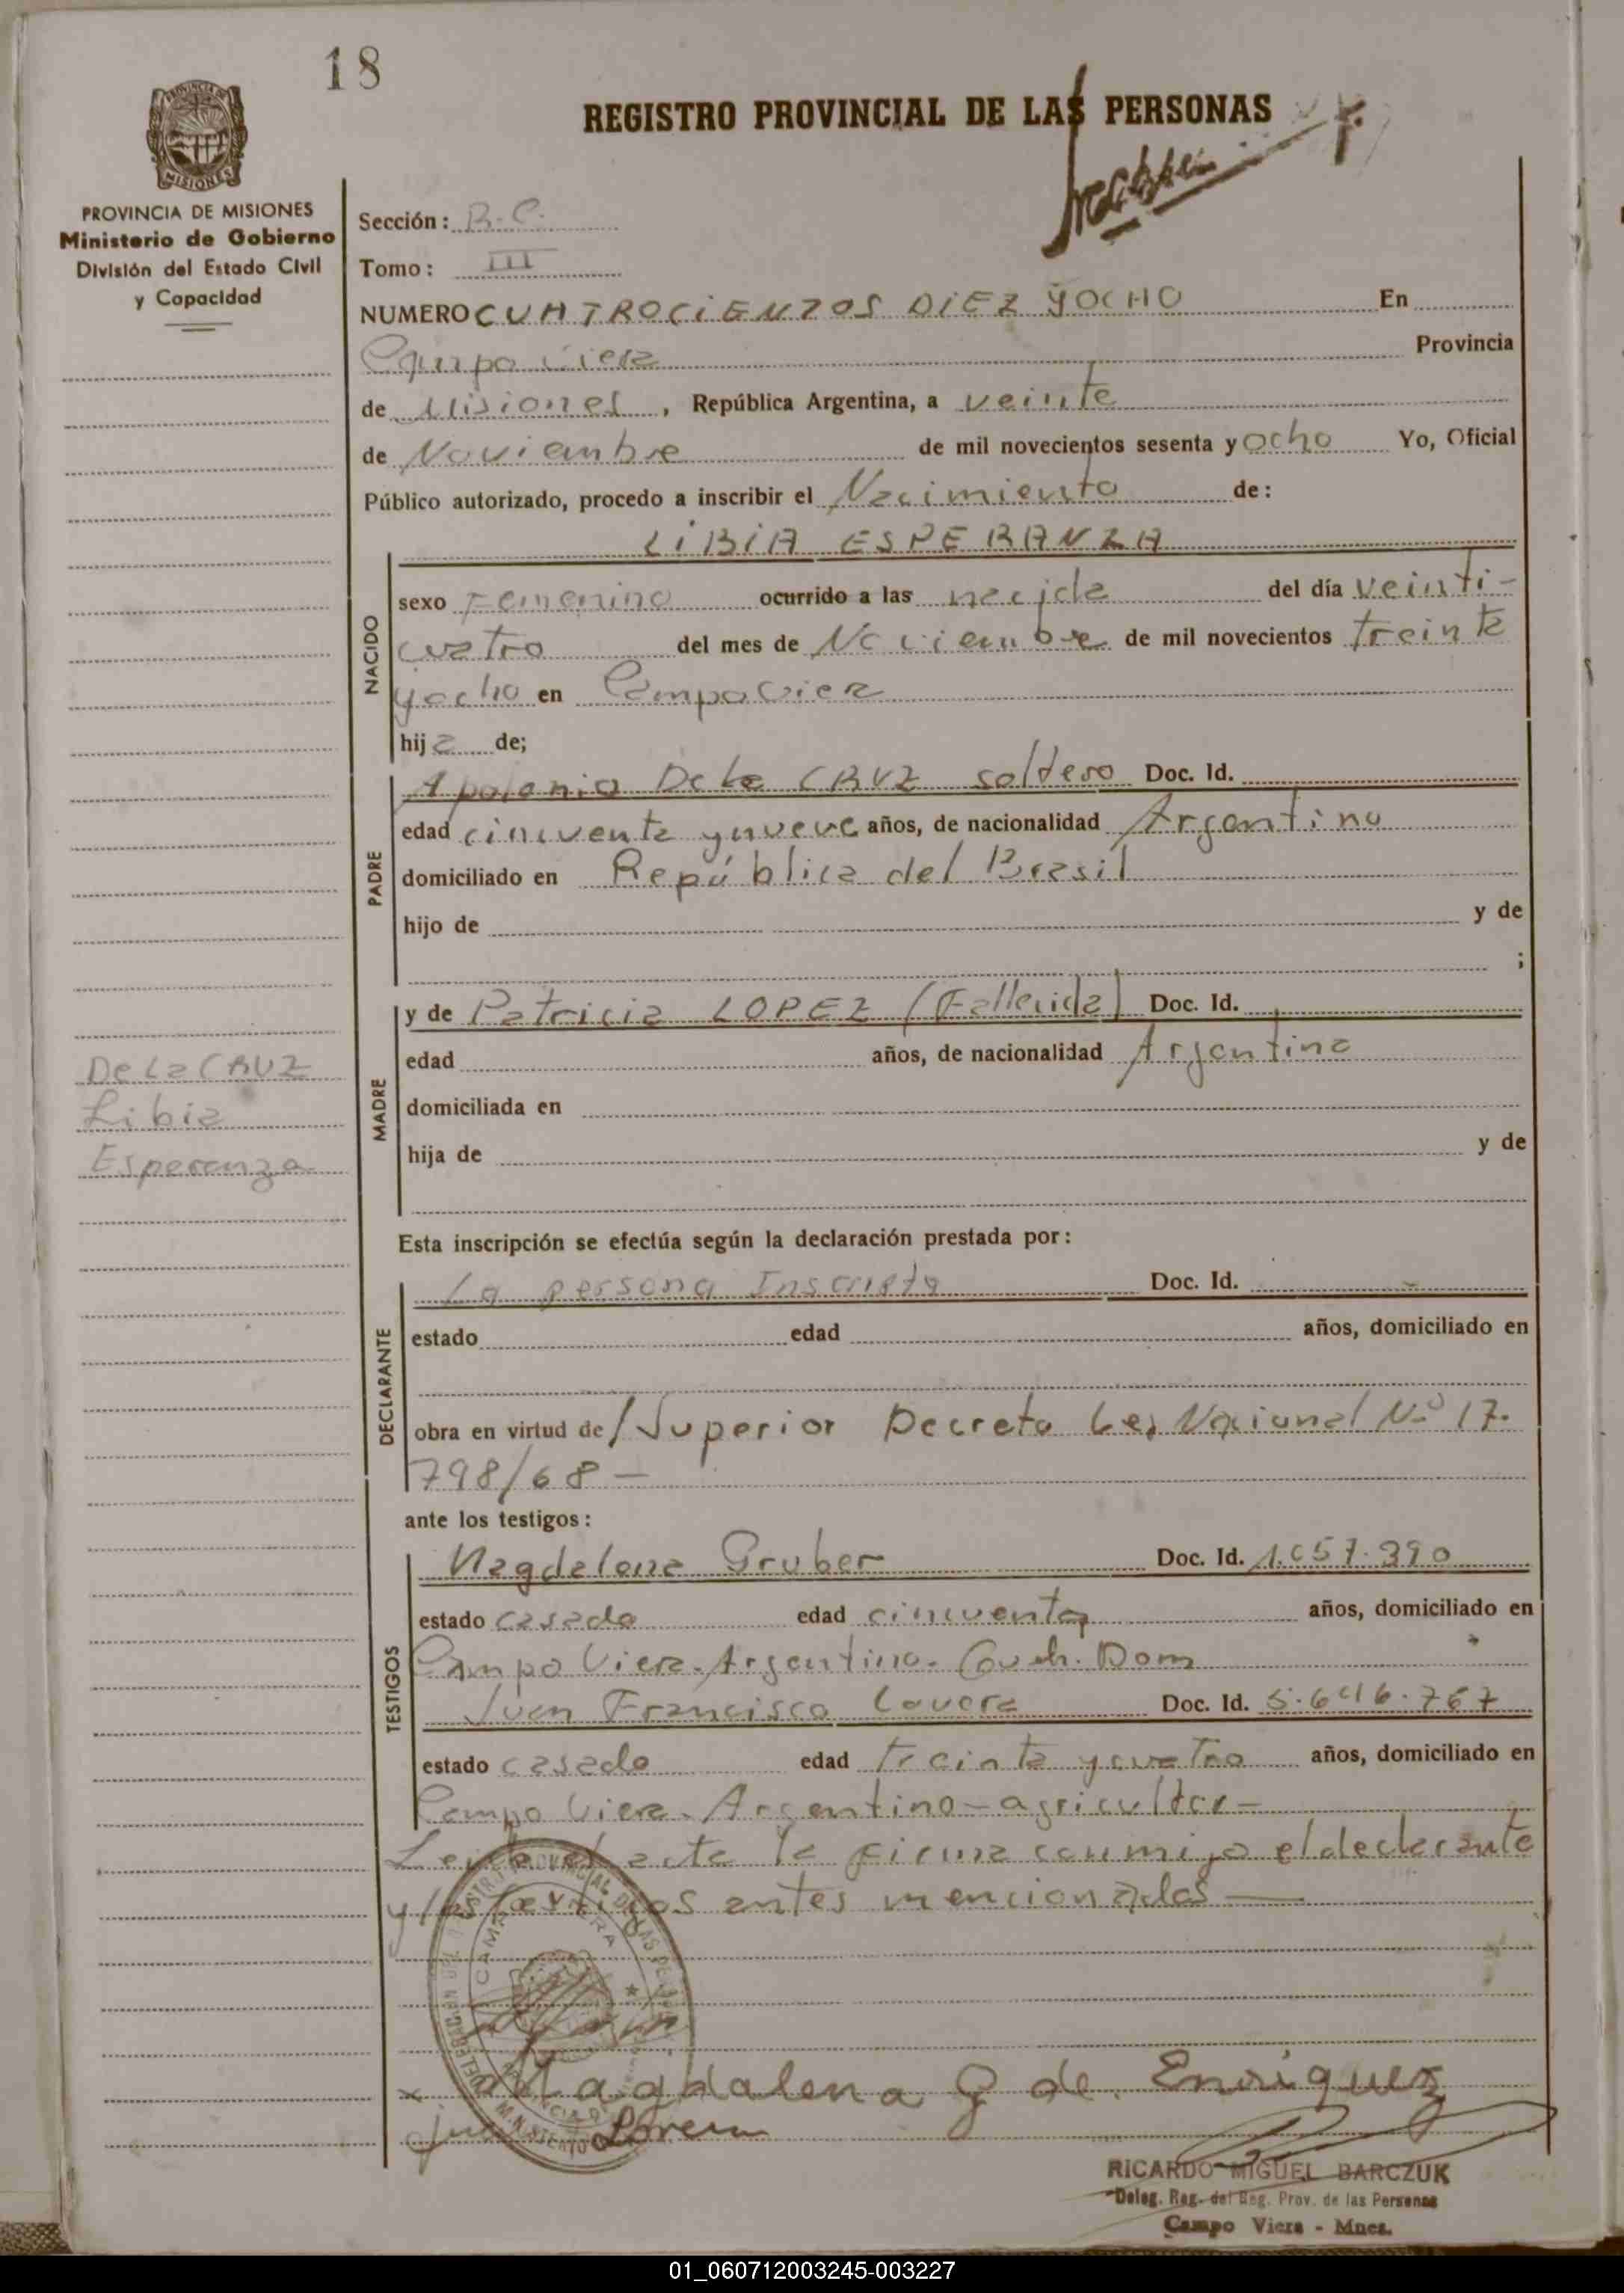 18
REGISTRO PROVINCIAL DE LAS PERSONAS
MISIONES
PROVINCIA DE MISIONES
Ministerio de Gobierno
División del Estado Civil
y Capacidad
Sección: R.C.
Tomo: III
NUMERO CUATROCiENTOS DiEZ YOCHO En
Campo Viera Provincia
de Misiones, República Argentina, a veinte
de Noviembre de mil novecientos sesenta y ocho Yo, Oficial
Público autorizado, procedo a inscribir el Nacimiento de:
LiBiA ESPERANZA
NACIDO
sexo Femenino ocurrido a las nacida del día veinti-
cuatro del mes de Noviembre de mil novecientos treinta
yocho en Campo Viera
hija de;
PADRE
Apolonio De La CRUZ soltero Doc. Id.
edad cincuenta ynueve años, de nacionalidad Argentino
domiciliado en República del Brasil
hijo de y de
;
MADRE
y de Patricia LOPEZ (Fallecida) Doc. Id.
edad años, de nacionalidad Argentina
domiciliada en
hija de y de
De La CRUZ
Libia
Esperanza
Esta inscripción se efectúa según la declaración prestada por:
DECLARANTE
La persona Inscripta Doc. Id.
estado edad años, domiciliado en
obra en virtud de Superior Decreto Ley Nacional Nº 17.
798/68 —
ante los testigos:
TESTIGOS
Magdalena Gruber Doc. Id. 1.057.390
estado casada edad cincuenta años, domiciliado en
Campo Viera. Argentina. Dom
Juan Francisco Lovera Doc. Id. 5.646.767
estado casado edad treinta ycuatro años, domiciliado en
Campo Viera. Argentino - agricultor -
Leida el acta la firma conmigo el declarante
y los testigos antes mencionados —
Magdalena G de Enriquez
RICARDO MIGUEL BARCZUK
Deleg. Reg. del Reg. Prov. de las Personas
Campo Viera - Mnes.
01_060712003245-003227